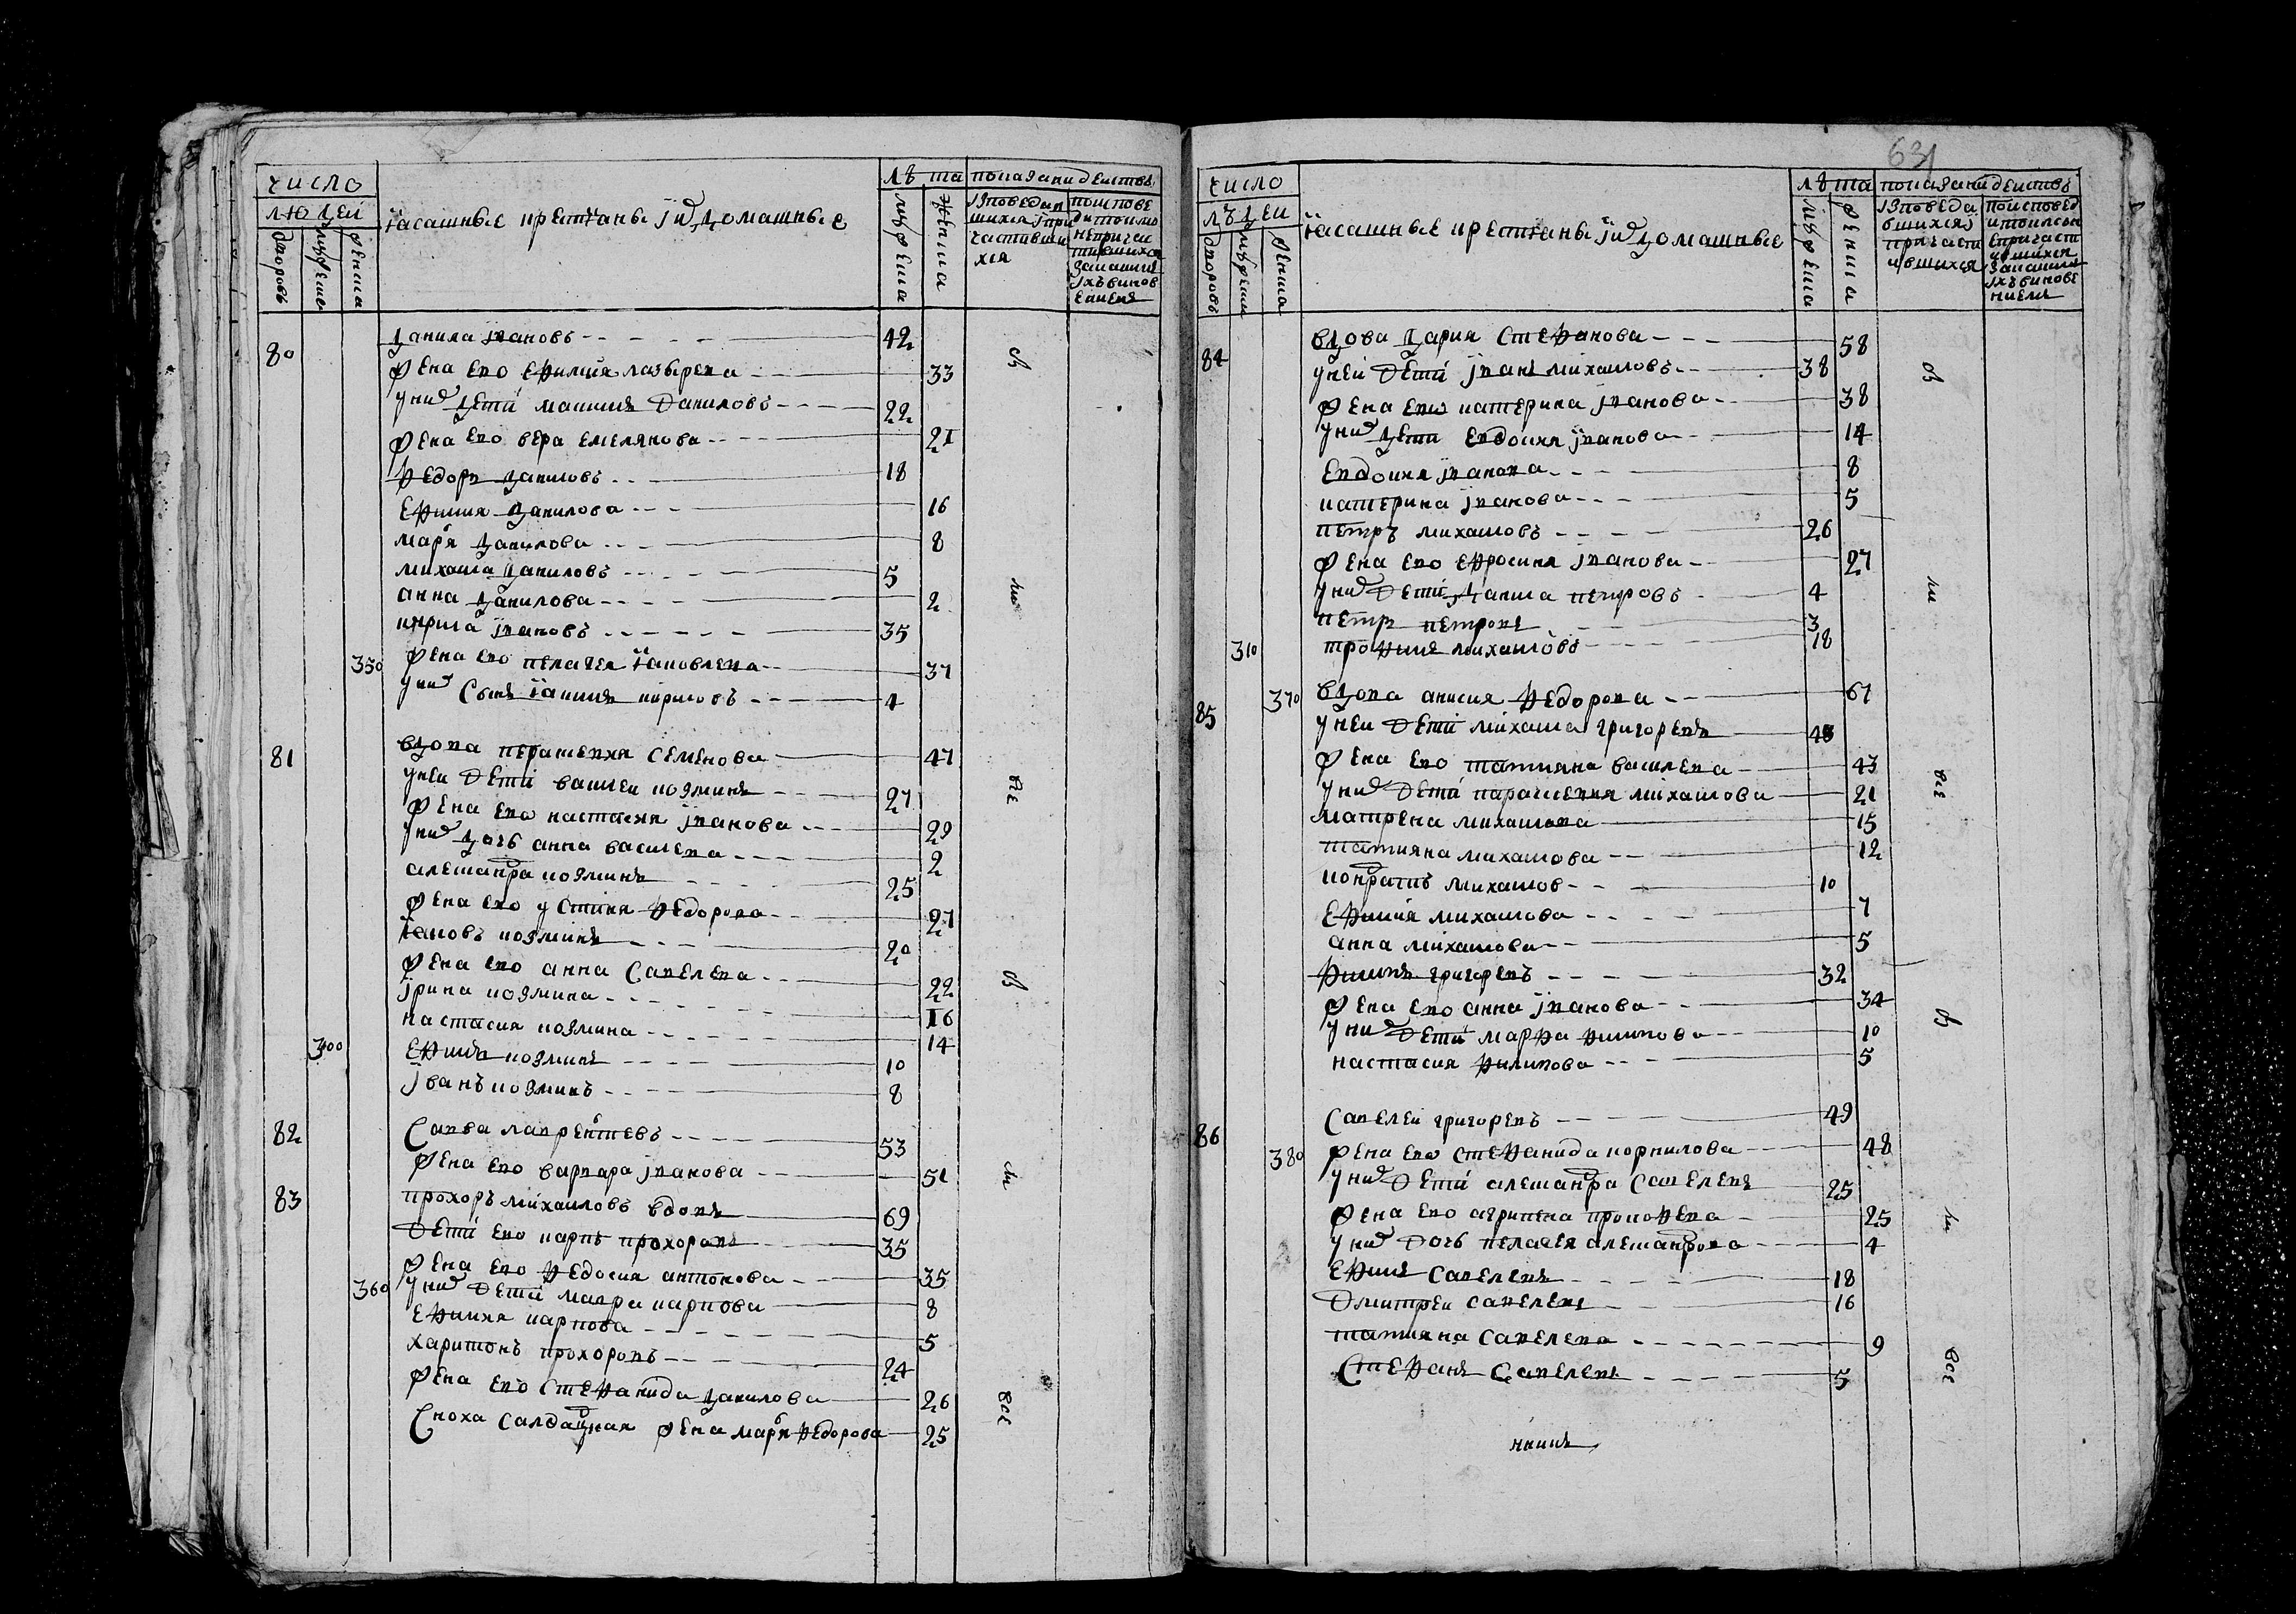 число
людей
дворовъ
мужеска
женска
ясашные крестьяне и ихъ домашные
лѣта
мужеска
женска
показани действъ
исповедав
шихся и при
частивши
хся
поиспове
дитокмо
непричас
тившихся
закакимъ
ихъ винов
ениемъ
80
данила ивановъ 42
жена ево ефимия лазырева 33
у них дети максимъ даниловъ 22
жена ево вера емелянова 21
федоръ даниловъ 18
ефимия данилова 16
марья данилова 8
михаила даниловъ 5
анна данилова 2
кирила ивановъ 35
350 жена ево пелагея яковлева 37
у них сынъ якимъ кириловъ 4
81
вдова перасковья семенова 47
у неи дети василеи козминъ 27
жена ево настасия иванова 29
у них дочь анна василева 2
александра козминъ 25
жена ево устиня федорова 27
яковъ козминъ 20
жена ево анна савелева 22
ирина козмина 16
настасия козмина 14
300 ефимъ козминъ 10
иванъ козминъ 8
82
савва лаврентьевъ 53
жена ево варвара иванова 51
83
прохоръ михаиловъ вдовъ 69
дети ево карпъ прохоровъ 35
жена ево федосия антонова 35
360 у них дети мавра карпова 8
ефимия карпова 5
харитонъ прохоровъ 24
жена ево стефанида данилова 26
сноха салдацкая жена марья федорова 25
вси
мы
все
вси
631
число
людеи
дворовъ
мужеска
женска
ясашные крестьяне и ихъ домашные
лѣта
мужеска
женска
показани действъ
исповеда
вшихся и
причаст
ившихся
поисповед
итокмон
епричаст
ившихся
закакимъ
ихъ винове
ниемъ
84
вдова дария стефанова 58
у неи дети иванъ михаиловъ 38
жена ево катерина иванова 38
у них дети евдокия иванова 14
евдокия иванова 8
катерина иванова 5
петръ михаиловъ 26
жена ево ефросиния иванова 27
у них дети данила петровъ 4
петръ петровъ 3
310 трофимъ михаиловъ 18
85
370 вдова анисия федорова 67
у неи дети михаила григоревъ 43
жена ево татияна василева 43
у них дети парасковия михаилова 21
матрена михаилова 15
татияна михаилова 12
кондратъ михаилов 10
ефимия михаилова 7
анна михаилова 5
филипъ григоревъ 32
жена ево анна иванова 34
у них дети марфа филипова 10
настасия филипова 5
86
савелеи григоревъ 49
380 жена ево стефанида корнилова 48
у них дети александра савелевъ 25
жена ево агрипена прокофева 25
у них дочь пелагея алексанрова 4
ефимъ савелевъ 18
дмитреи савелевъ 16
татияна савелева 9
стефанъ савелевъ 5
все